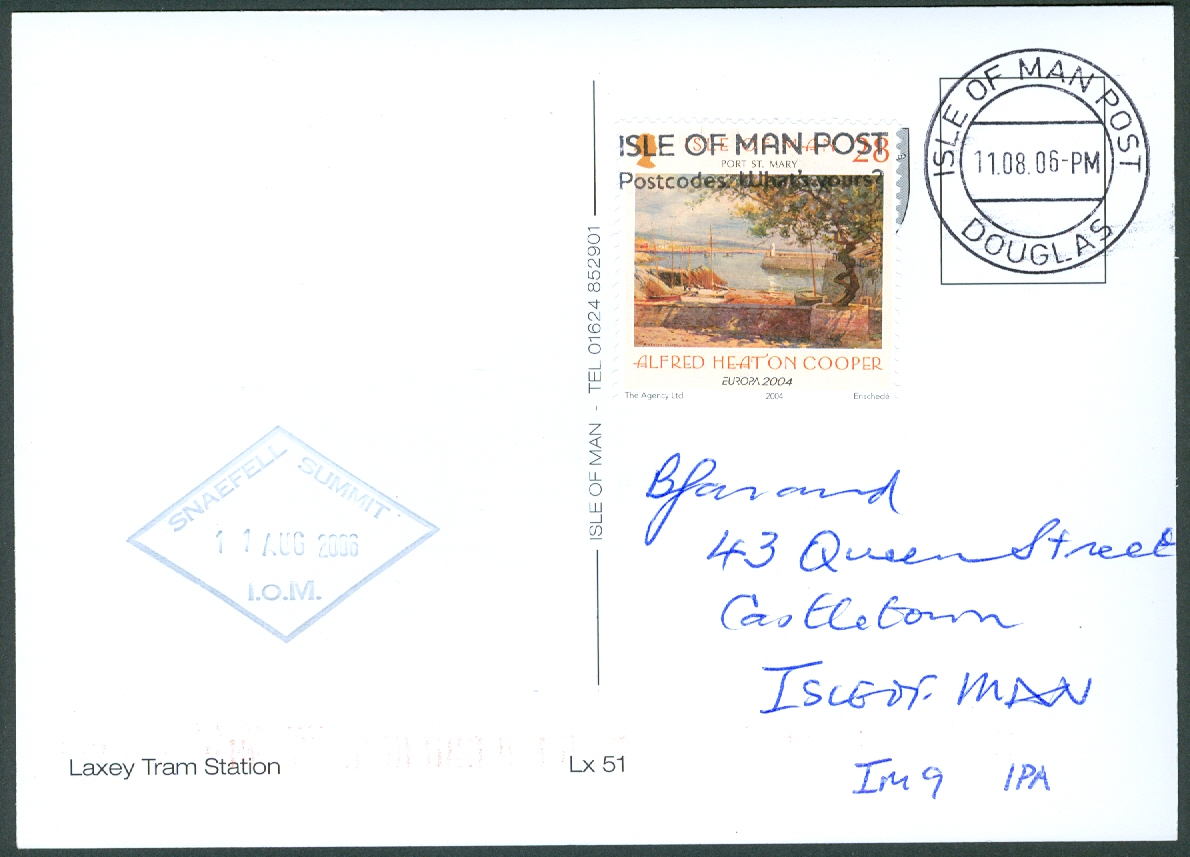 ISLE OF MAN POST
11.08.06-PM
DOUGLAS
ISLE OF MAN POST
Postcodes. What's yours?
ISLE OF MAN
28
PORT ST. MARY
ALFRED HEATON COOPER
EUROPA 2004
The Agency Ltd 2004 Enschedé
ISLE OF MAN - TEL 01624 852901
SNAEFELL SUMMIT
11 AUG 2006
I.O.M.
B Farrand
43 Queen Street
Castletown
ISLE OF MAN
IM9 1PA
Laxey Tram Station
Lx 51